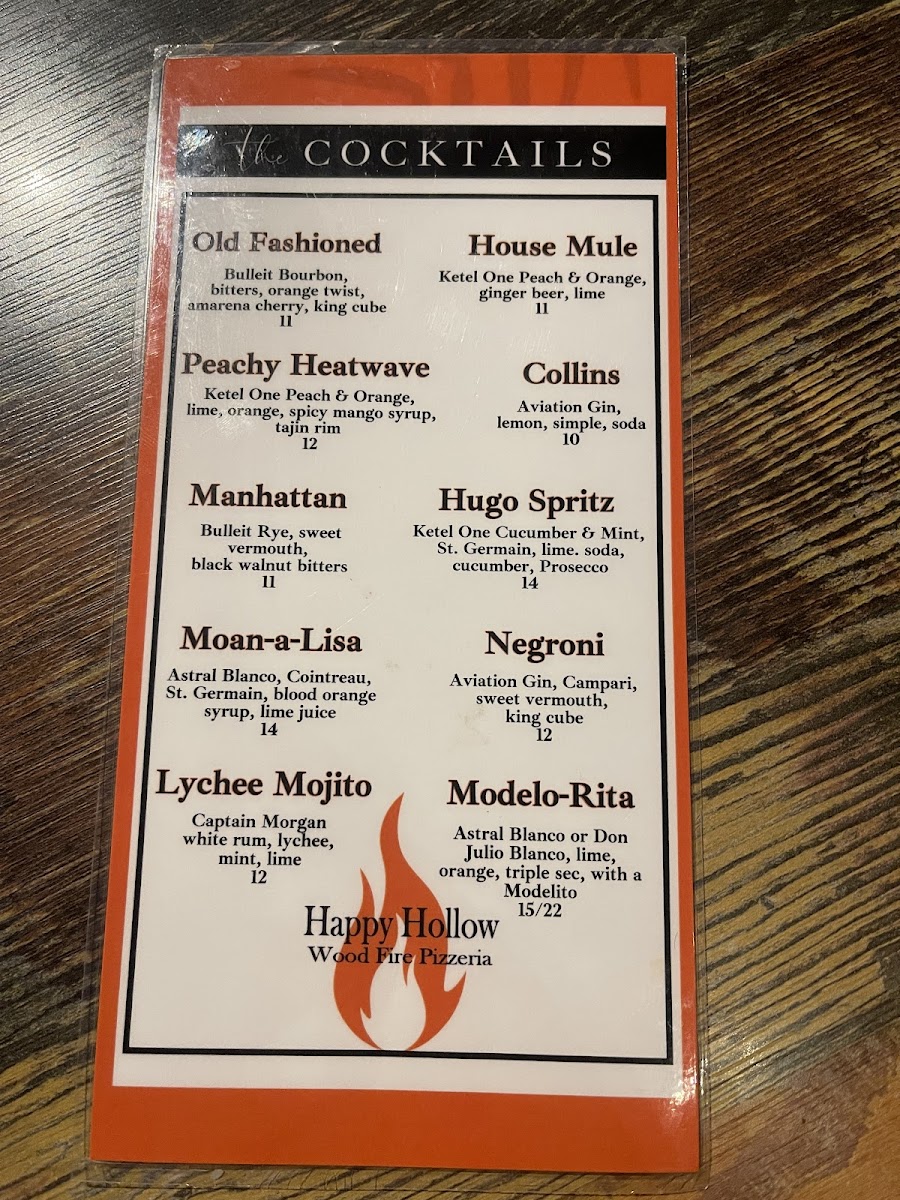 the COCKTAILS
Old Fashioned
Bulleit Bourbon,
bitters, orange twist,
amarena cherry, king cube
11
House Mule
Ketel One Peach & Orange,
ginger beer, lime
11
Peachy Heatwave
Ketel One Peach & Orange,
lime, orange, spicy mango syrup,
tajin rim
12
Collins
Aviation Gin,
lemon, simple, soda
10
Manhattan
Bulleit Rye, sweet
vermouth,
black walnut bitters
11
Hugo Spritz
Ketel One Cucumber & Mint,
St. Germain, lime. soda,
cucumber, Prosecco
14
Moan-a-Lisa
Astral Blanco, Cointreau,
St. Germain, blood orange
syrup, lime juice
14
Negroni
Aviation Gin, Campari,
sweet vermouth,
king cube
12
Lychee Mojito
Captain Morgan
white rum, lychee,
mint, lime
12
Modelo-Rita
Astral Blanco or Don
Julio Blanco, lime,
orange, triple sec, with a
Modelito
15/22
Happy Hollow
Wood Fire Pizzeria